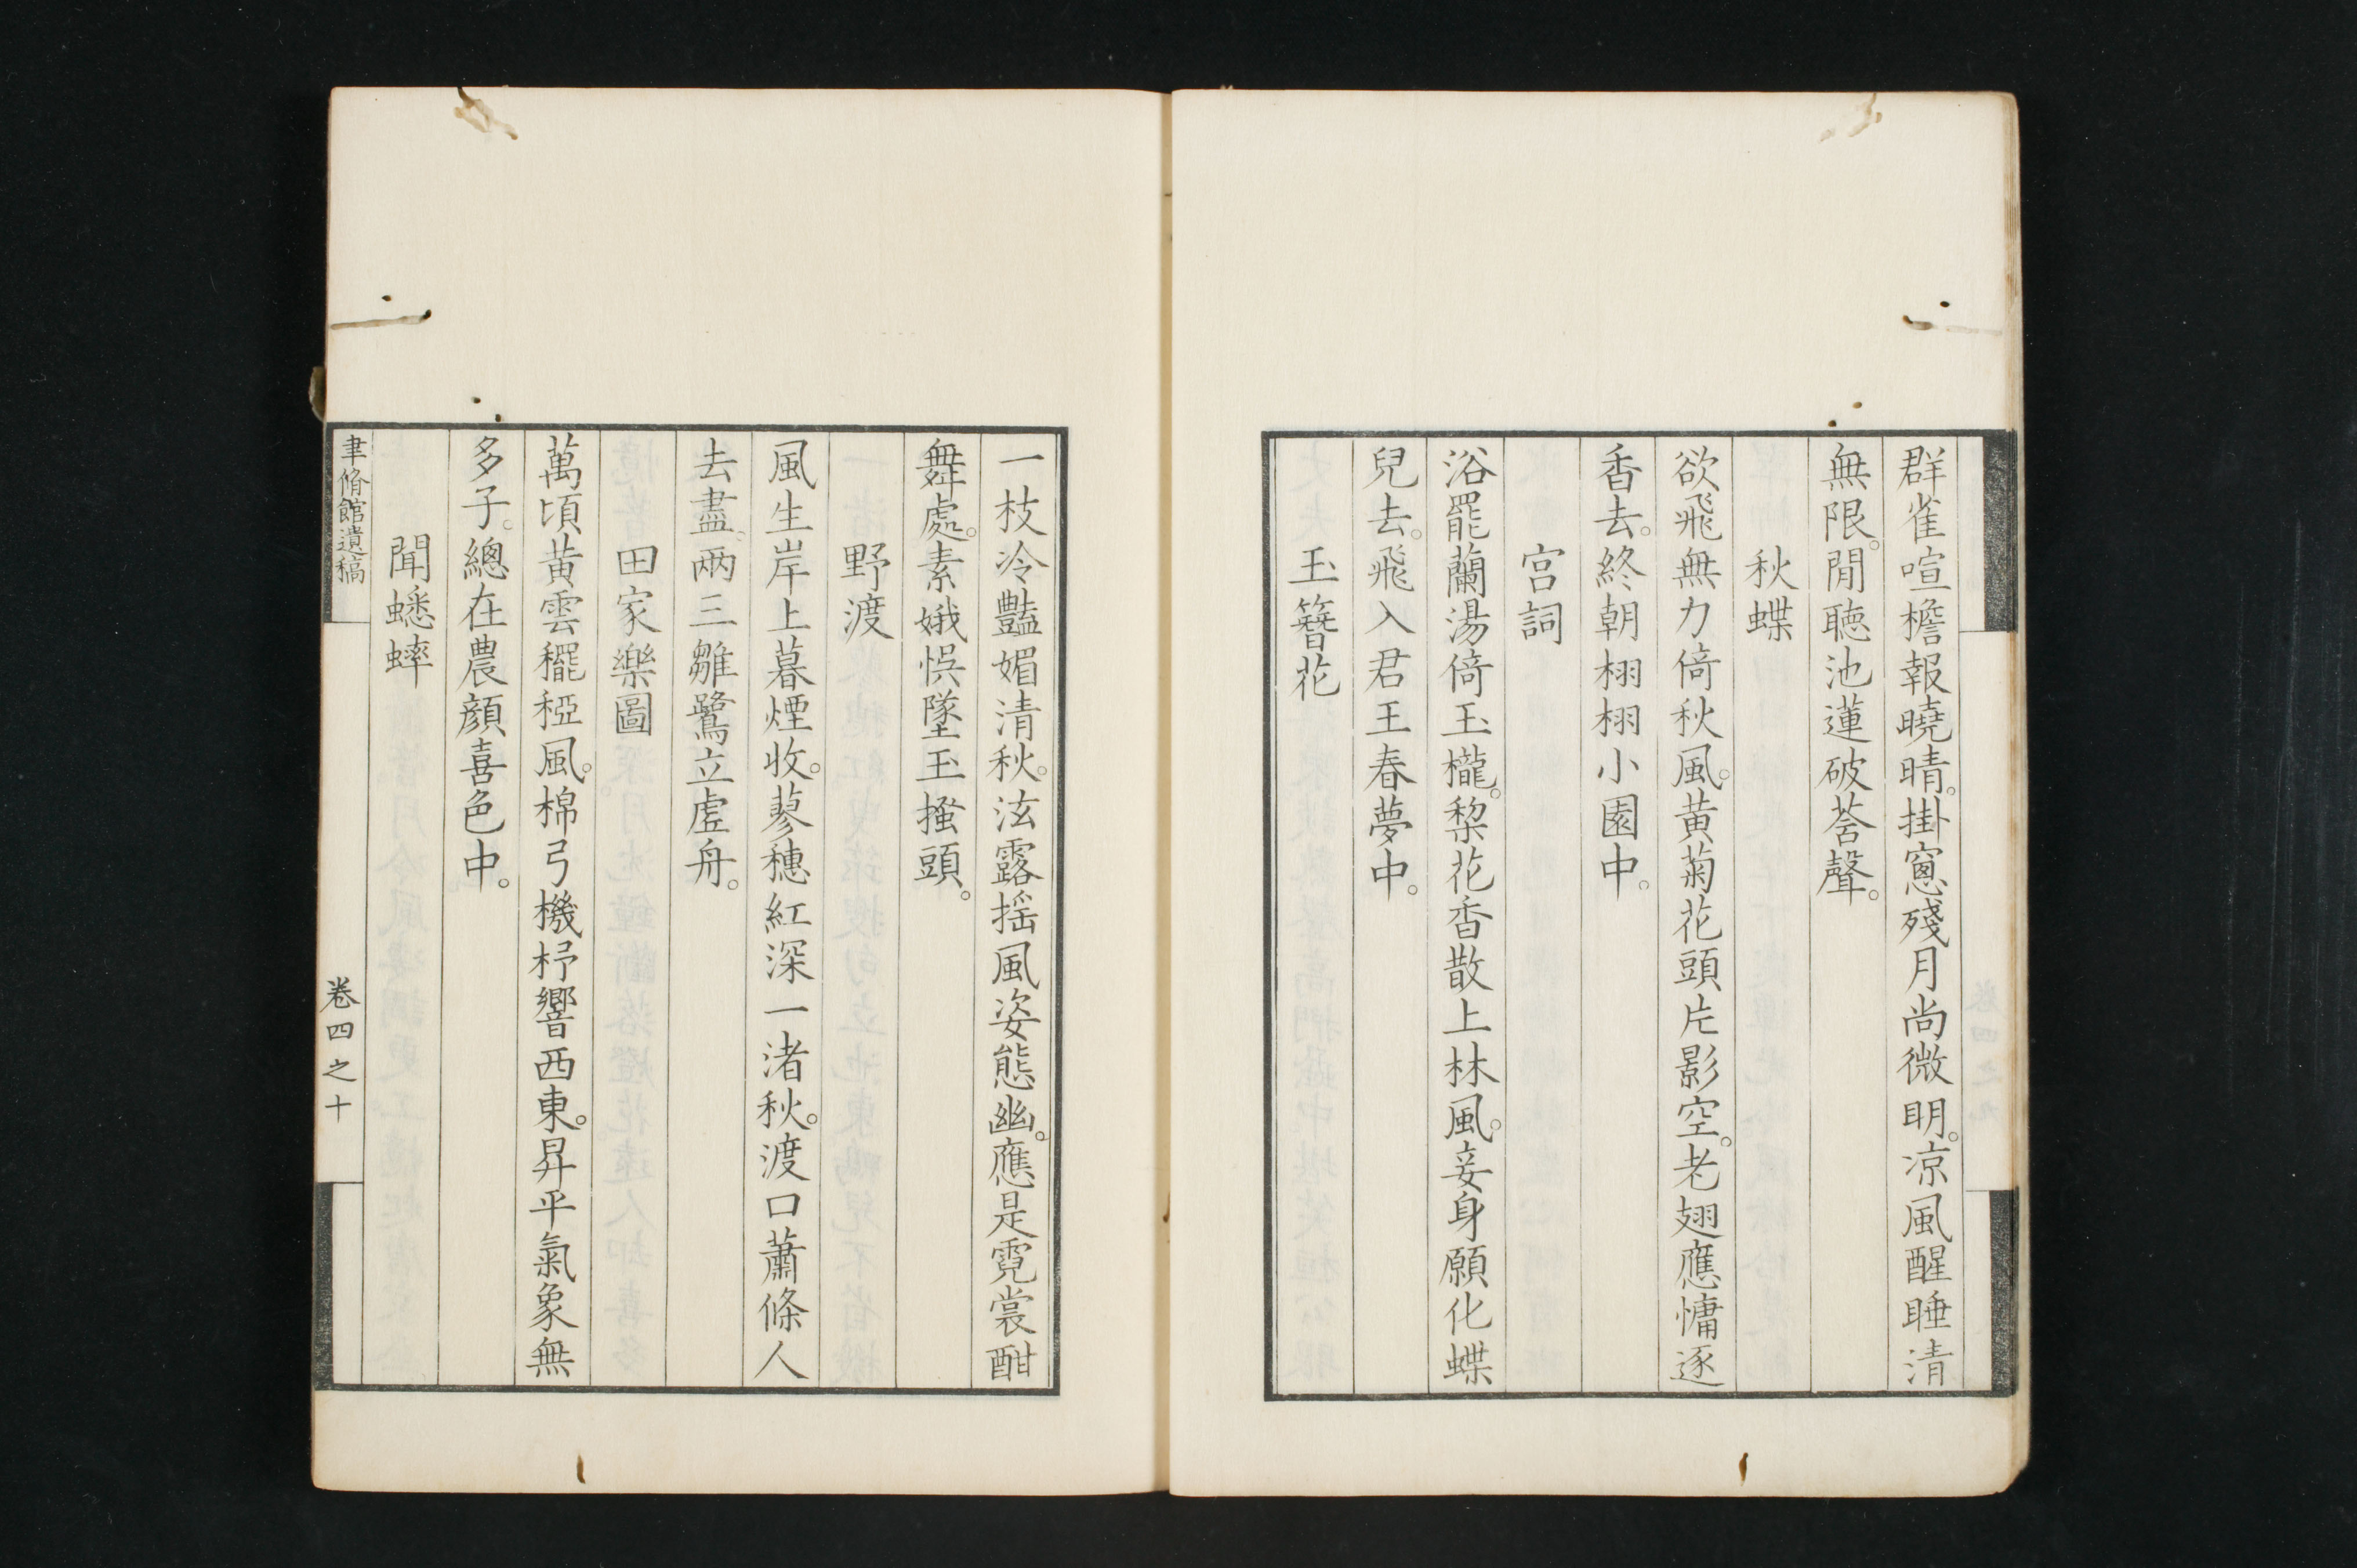 群雀喧檐報曉晴。掛窻殘月尚微明。凉風醒睡清
無限。閒聴池蓮破荅聲。
秋蝶
欲飛無力倚秋風。黄菊花頭片影空。老翅應慵逐
香去。終朝栩栩小園中。
宫詞
浴罷蘭湯倚玉櫳。棃花香散上林風。妾身願化蝶
兒去。飛入君王春夢中。
玉簪花
一枝冷豔媚清秋。泫露揺風姿態幽。應是霓裳酣
舞處。素娥悞墜玉搔頭。
野渡
風生岸上暮煙收。蓼穗紅深一渚秋。渡口蕭條人
去盡。兩三雛鷺立虚舟。
田家樂圖
萬頃黄雲䆉稏風。棉弓機杼響西東。昇平氣象無
多子。總在農顔喜色中。
聞蟋蟀
聿脩館遺稿
卷四之十